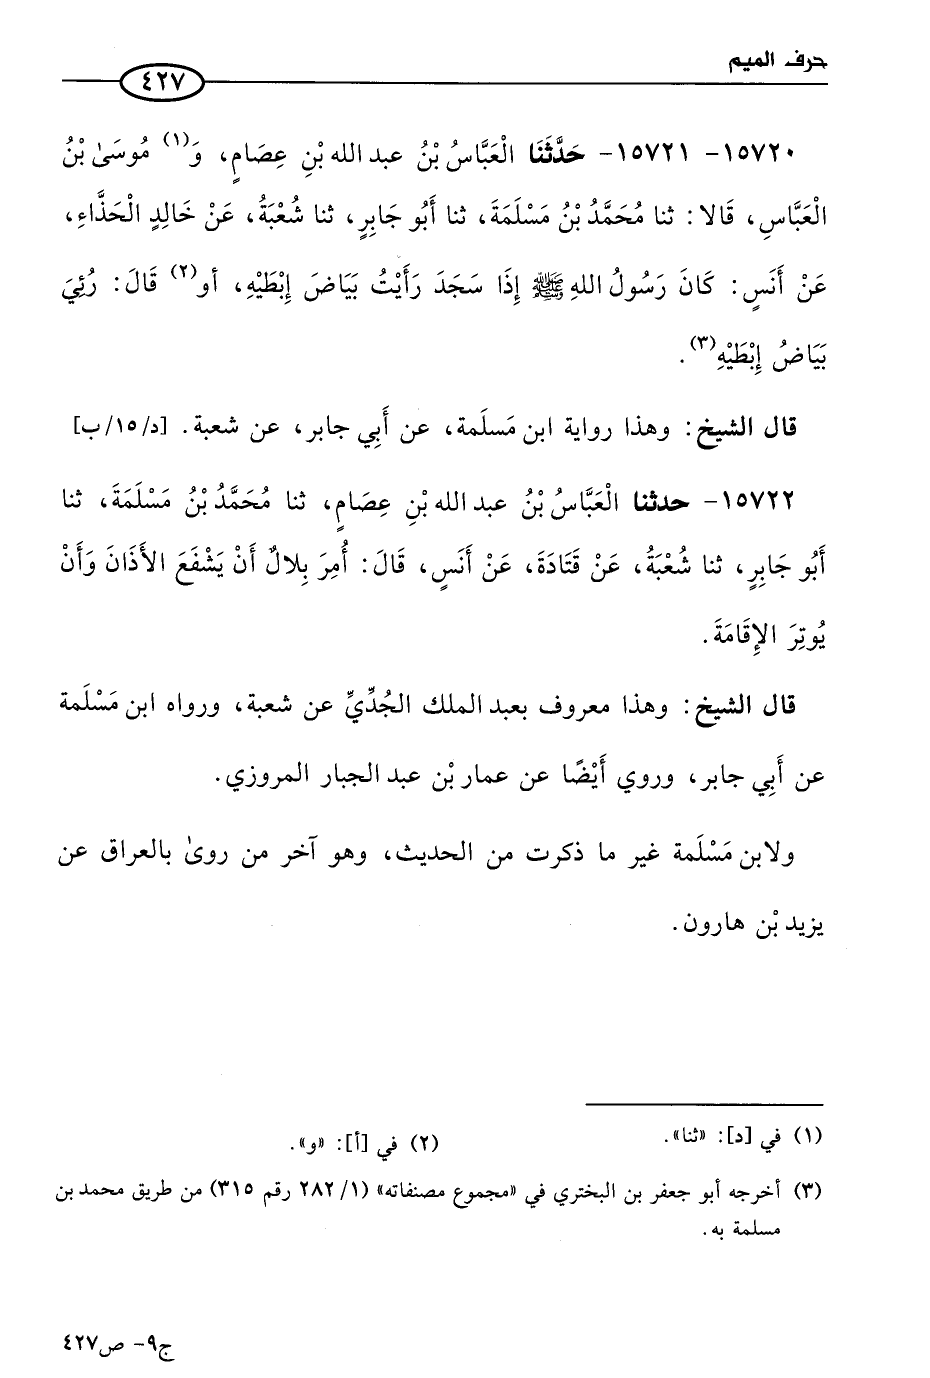 حرف الميم
٤٢٧
١٥٧٢٠- ١٥٧٢١- حَدَّثَنَا الْعَبَّاسُ بْنُ عبد الله بْنِ عِصَامٍ، وَ(١) مُوسَىٰ بْنُ
الْعَبَّاسِ، قَالا: ثنا مُحَمَّدُ بْنُ مَسْلَمَةَ، ثنا أَبُو جَابِرٍ، ثنا شُعْبَةُ، عَنْ خَالِدٍ الْحَذَّاءِ،
عَنْ أَنَسٍ: كَانَ رَسُولُ اللهِ ﷺ إِذَا سَجَدَ رَأَيْتُ بَيَاضَ إِبْطَيْهِ، أو(٢) قَالَ: رُئِيَ
بَيَاضُ إِبْطَيْهِ(٣).
قال الشيخ: وهذا رواية ابن مَسلَمة، عن أَبِي جابر، عن شعبة. [د/١٥/ب]
١٥٧٢٢- حدثنا الْعَبَّاسُ بْنُ عبد الله بْنِ عِصَامٍ، ثنا مُحَمَّدُ بْنُ مَسْلَمَةَ، ثنا
أَبُو جَابِرٍ، ثنا شُعْبَةُ، عَنْ قَتَادَةَ، عَنْ أَنَسٍ، قَالَ: أُمِرَ بِلالٌ أَنْ يَشْفَعَ الأَذَانَ وَأَنْ
يُوتِرَ الإِقَامَةَ.
قال الشيخ: وهذا معروف بعبد الملك الجُدِّيِّ عن شعبة، ورواه ابن مَسْلَمة
عن أَبِي جابر، وروي أَيْضًا عن عمار بْن عبد الجبار المروزي.
ولابن مَسْلَمة غير ما ذكرت من الحديث، وهو آخر من روىٰ بالعراق عن
يزيد بْن هارون.
(١) في [د]: «ثنا». (٢) في [أ]: «و».
(٣) أخرجه أبو جعفر بن البختري في «مجموع مصنفاته» (١/ ٢٨٢ رقم ٣١٥) من طريق محمد بن
مسلمة به.
ج٩- ص٤٢٧